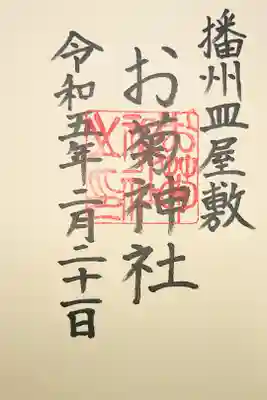 播州皿屋敷
お菊神社
令和五年二月二十一日